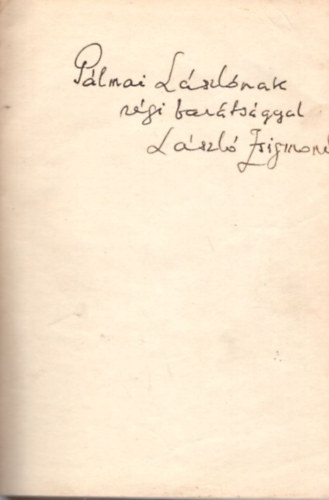 Pálmai Lászlónak
régi barátsággal
László Zsigmond